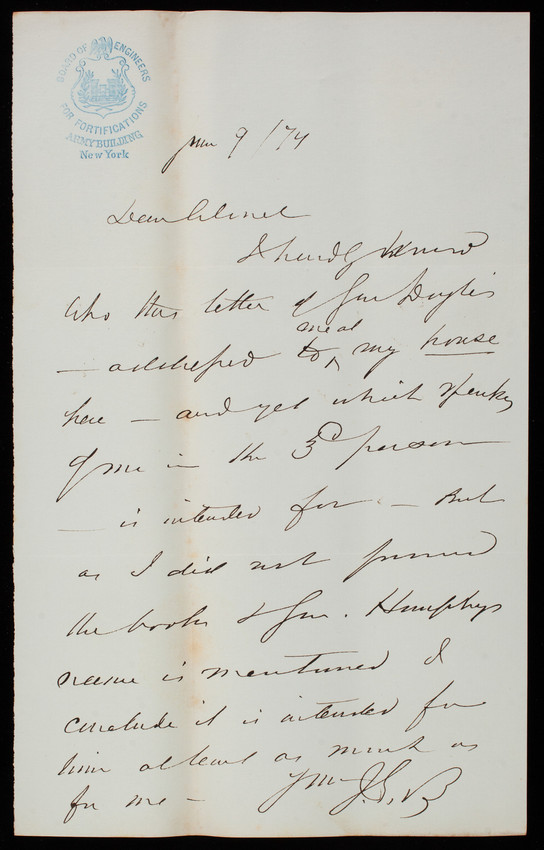 BOARD OF ENGINEERS
FOR FORTIFICATIONS
ARMY BUILDING
New York
June 9 /74
Dear Colonel
I hardly know
who this letter of Gen
me at
– addressed to my house
here – and yet which speaks
of me in the 3d person
– is intended for – But
as I did not
the books & Gen. Humphreys
name is mentioned I
conclude it is intended for
him at least as much as
for me –
J.G.B